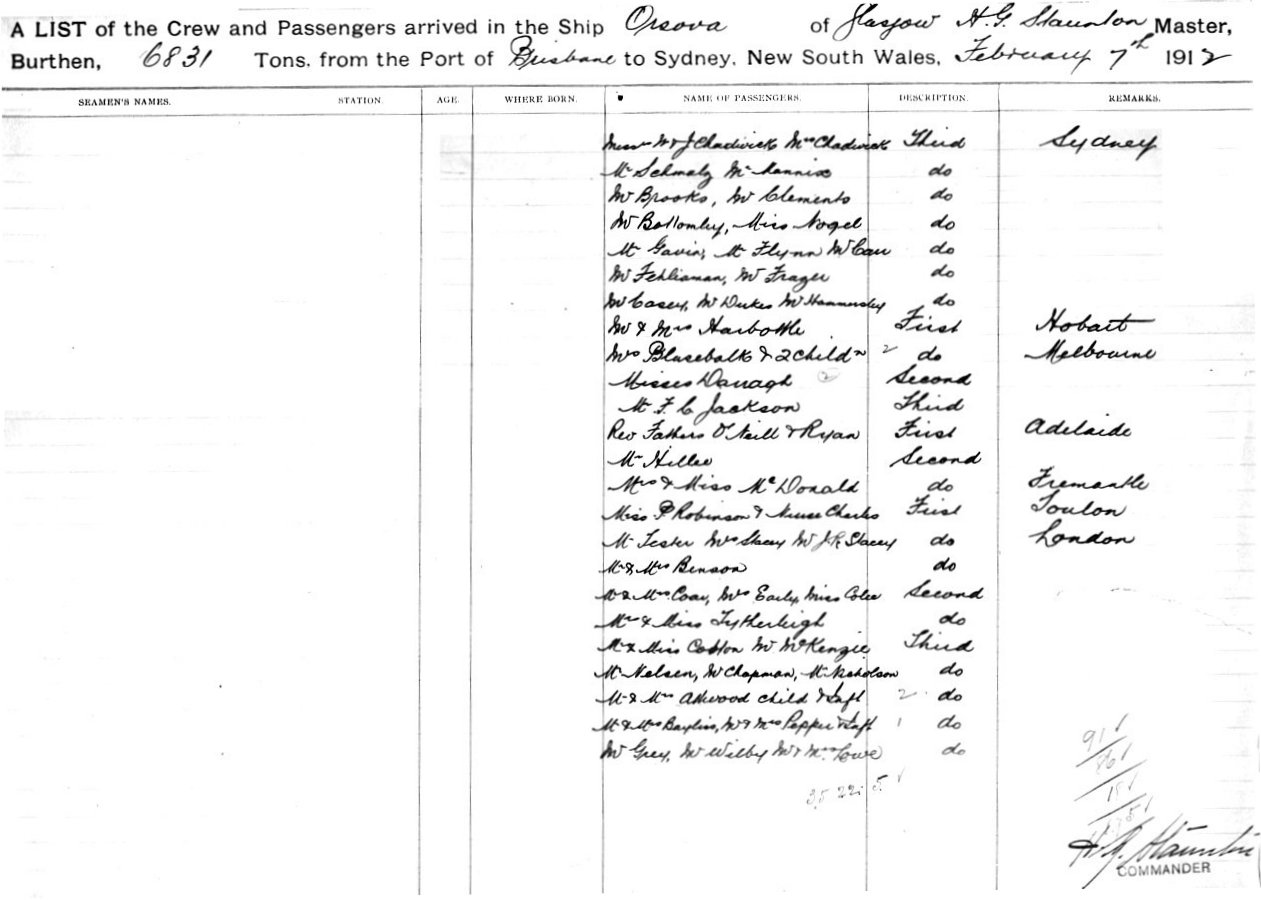 A LIST of the Crew and Passengers arrived in the Ship Orsova of Glasgow H.G. Staunton Master,
Burthen, 6831 Tons. from the Port of Brisbane to Sydney, New South Wales, February 7th 1912
SEAMEN'S NAMES. STATION. AGE. WHERE BORN. NAME OF PASSENGERS. DESCRIPTION. REMARKS.
Messrs W & J Chadwick Mrs Chadwick Third Sydney
Mr Schmalz Mr Mannix do
Mr Brooks, Mr Clements do
Mr Bottomley, Miss Nogel do
Mr Gavin, Mr Flynn Mr Carr do
Mr Fehliaman, Mr Frazer do
Mr Casey, Mr Dukes Mr Hammersley do
Mr & Mrs Harbottle First Hobart
Mrs Blasebalk & 2 Childn 2 do Melbourne
Misses Darragh 2 Second
Mr F. C Jackson Third
Rev Fathers O'Neill & Ryan First Adelaide
Mr Hillee Second
Mrs & Miss McDonald do Fremantle
Miss P Robinson & Nurse Charles First Toulon
Mr Tester Mrs Stacey Mr J.R. Stacey do London
Mr & Mrs Benson do
Mr & Mrs Coar, Mrs Early, Miss Colee Second
Mr & Miss Tytherleigh do
Mr & Miss Cotton Mr McKenzie Third
Mr Nelsen, Mr Chapman, Mr Nicholson do
Mr & Mrs Attwood child & Inft 2 do
Mr & Mrs Bayliss, Mr & Mrs Pepper & Inft 1 do
Mr Grey, Mr Wilby Mr & Mrs Lowe do
35 22 5
91
86
H.G. Staunton
COMMANDER